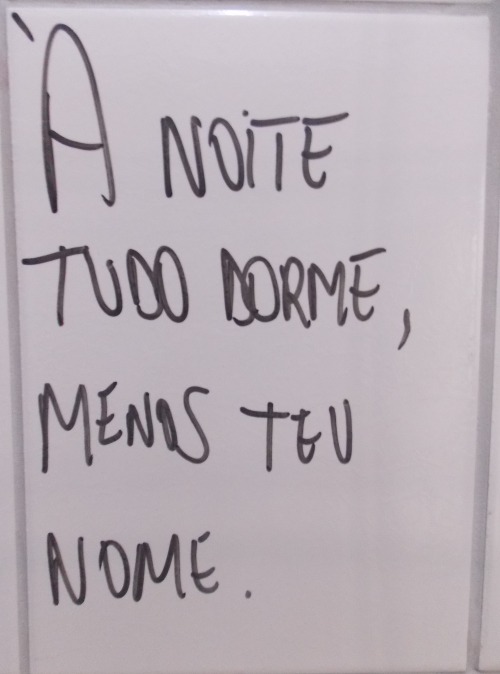 À NOITE
TUDO DORME,
MENOS TEU
NOME.